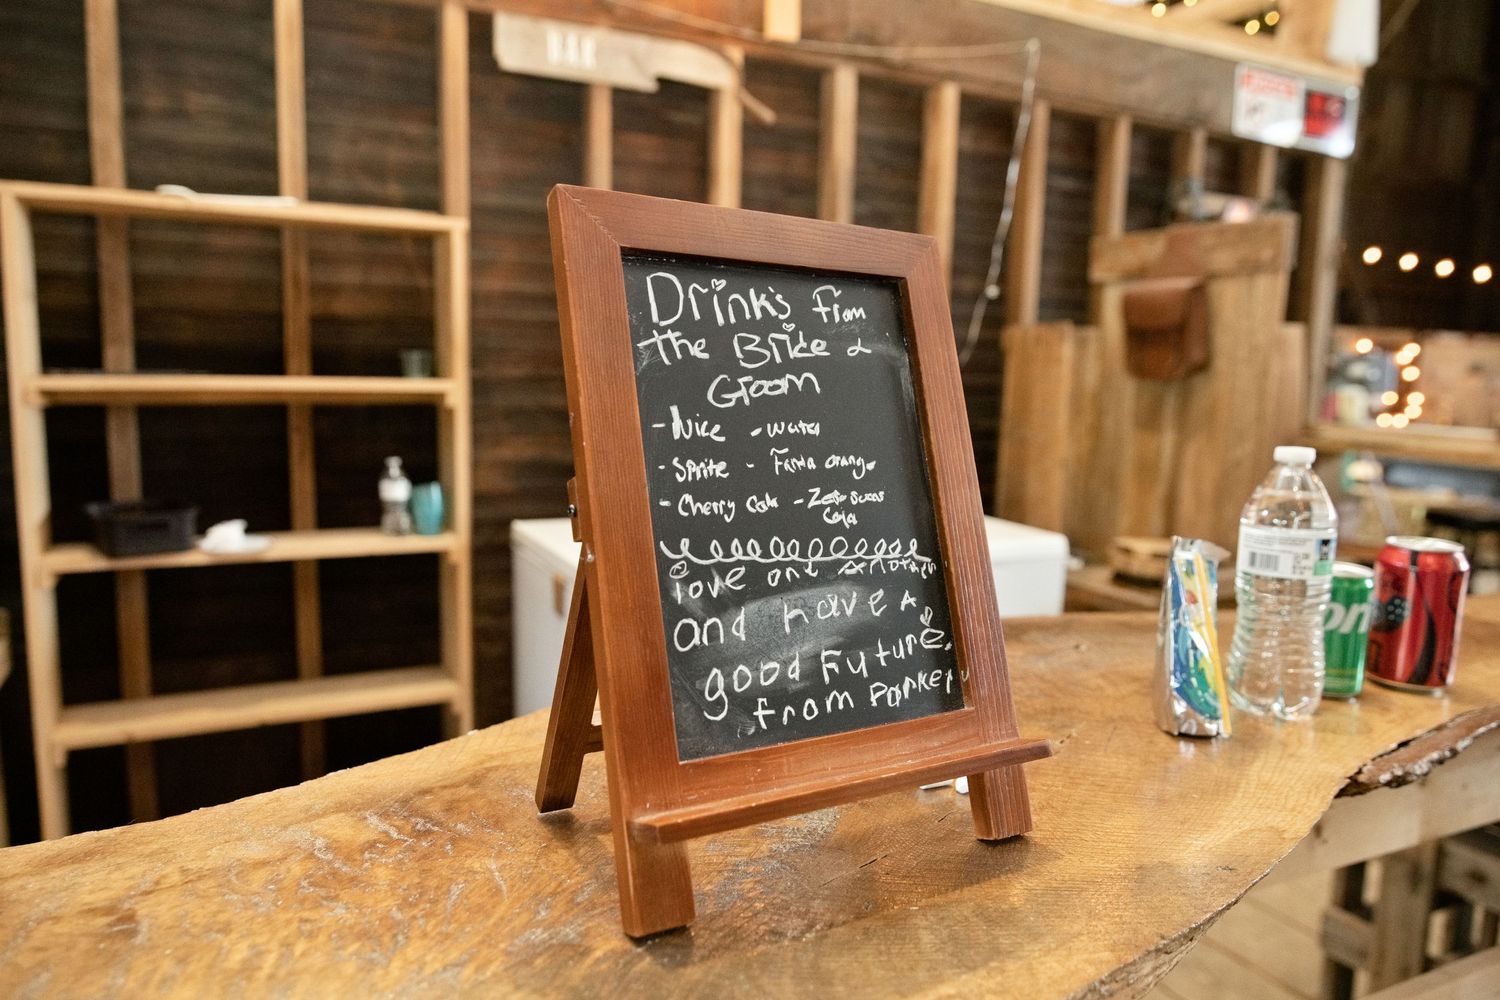 BAR
Drink's From
the Bride &
Groom
- Juice - water
- Sprite - Fanta orange
- Cherry Coke - Zero sugar
Cola
love one another
and have A
good Future.
from Parker